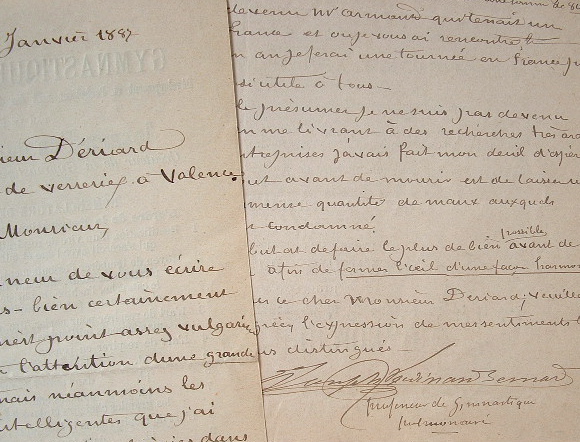 Janvier 1887
GYMNASTIQUE
Dériard
de verrerie, à Valence
Monsieur,
neur de vous écrire
s-bien certainement
point assez vulgaire
l'attention d'une grande
mais néanmoins les
intelligentes que j'ai
dans
devenu Mr armand qui tenait un
france et où je vous ai rencontré
je ferai une tournée en france
utile à tous -
présumer je ne suis pas devenu
me livrant à des recherches très
j'avais fait mon deuil
avant de mourir est de laisser
mense quantité de maux auxquels
condamné
but est de faire le plus de bien possible avant de
afin de fermer l'œil d'une façon
ce cher Monsieur Dériard, veuillez
l'expression de mes sentiments
distingués -
Bernard
Professeur de Gymnastique
pulmonaire